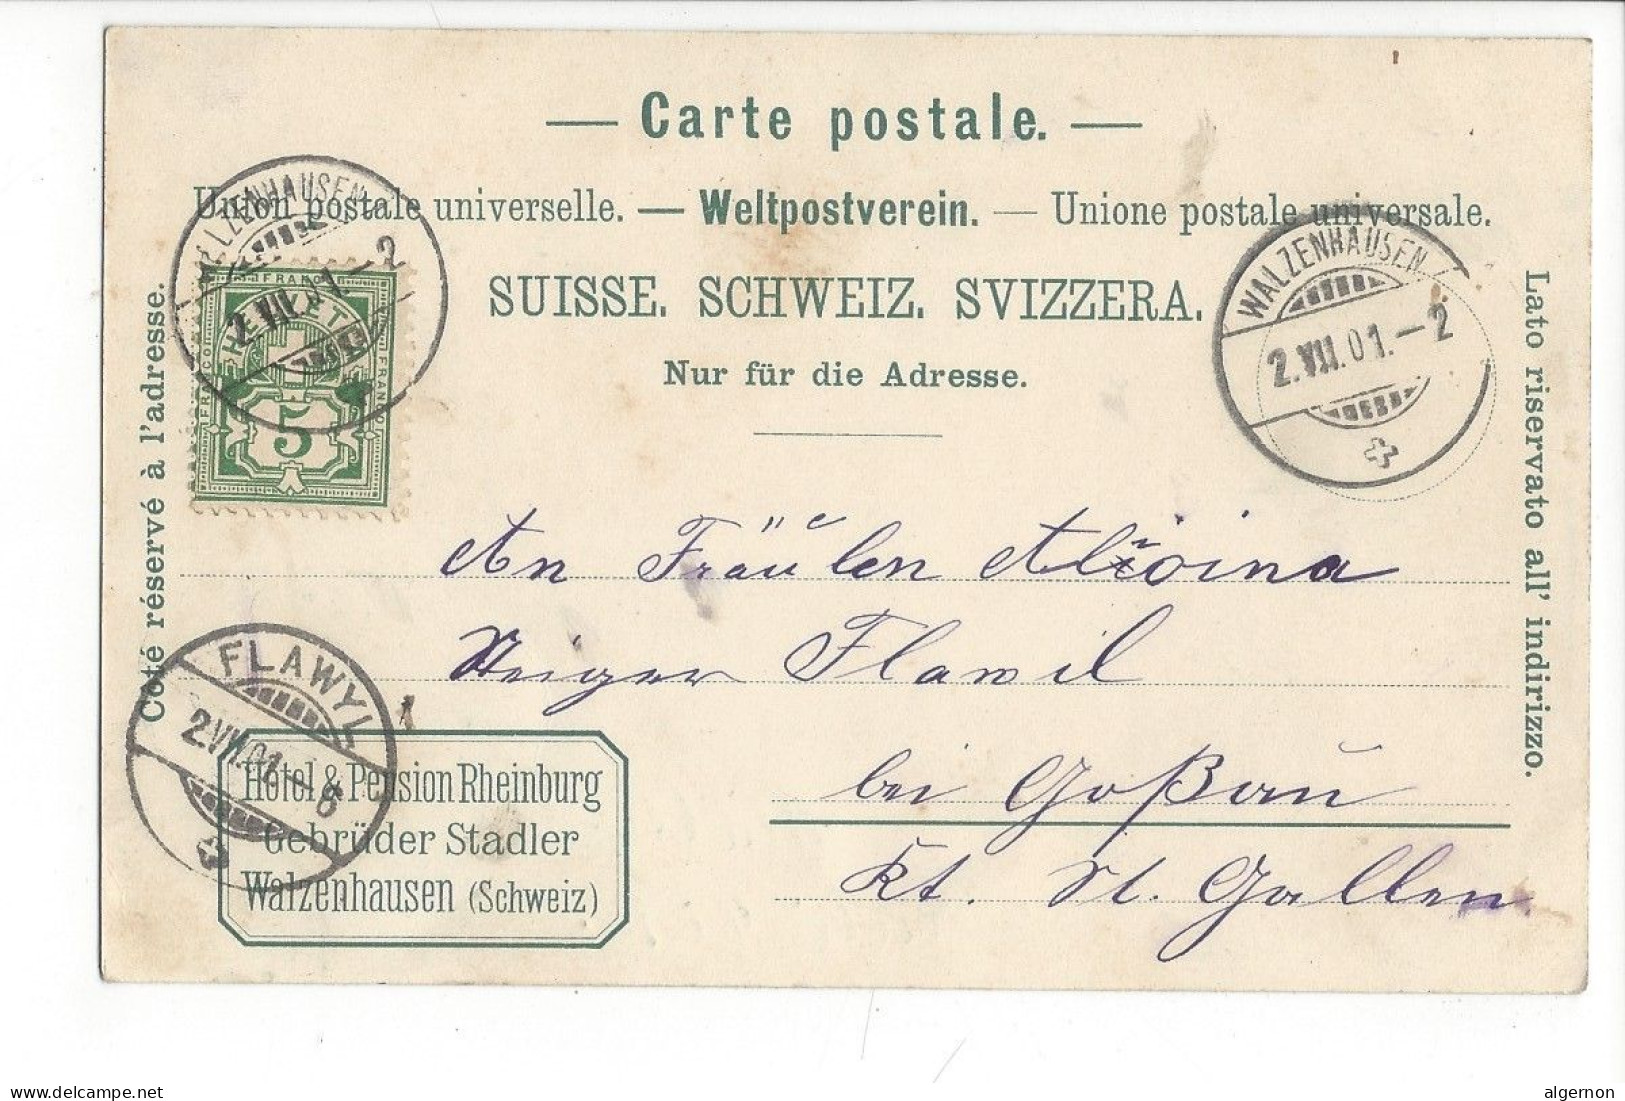 — Carte postale. —
Union postale universelle. — Weltpostverein. — Unione postale universale.
SUISSE. SCHWEIZ. SVIZZERA.
Nur für die Adresse.
Côté réservé à l'adresse.
Lato riservato all' indirizzo.
WALZENHAUSEN
2.VII.01.–2
FRANCO
HELVETIA
FRANCO
FRANCO
5
WALZENHAUSEN
2.VII.01.–2
An Fräulen
Steiger Flawil
bei Goßau
Kt. St. Gallen
FLAWYL
2.VII.01.–6
1
Hôtel & Pension Rheinburg
Gebrüder Stadler
Walzenhausen (Schweiz)
delcampe.net
algernon